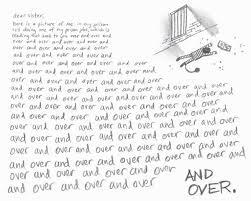 dear sister,
here is a picture of me in my prison
doing one of my prison which is
that book to you and over
over and over and over and over
and over and over and over
over and over and over and over
and over and over and over and over
over and over and over and over and
over and over and over and over and over
over and over and over and over and over and over
and over and over and over and over and over and over
over and over and over and over and over and over and
over and over and over and over and over and over
and over and over and over and over and over and over
and over and over and over and over
and over and over and over
AND
OVER.